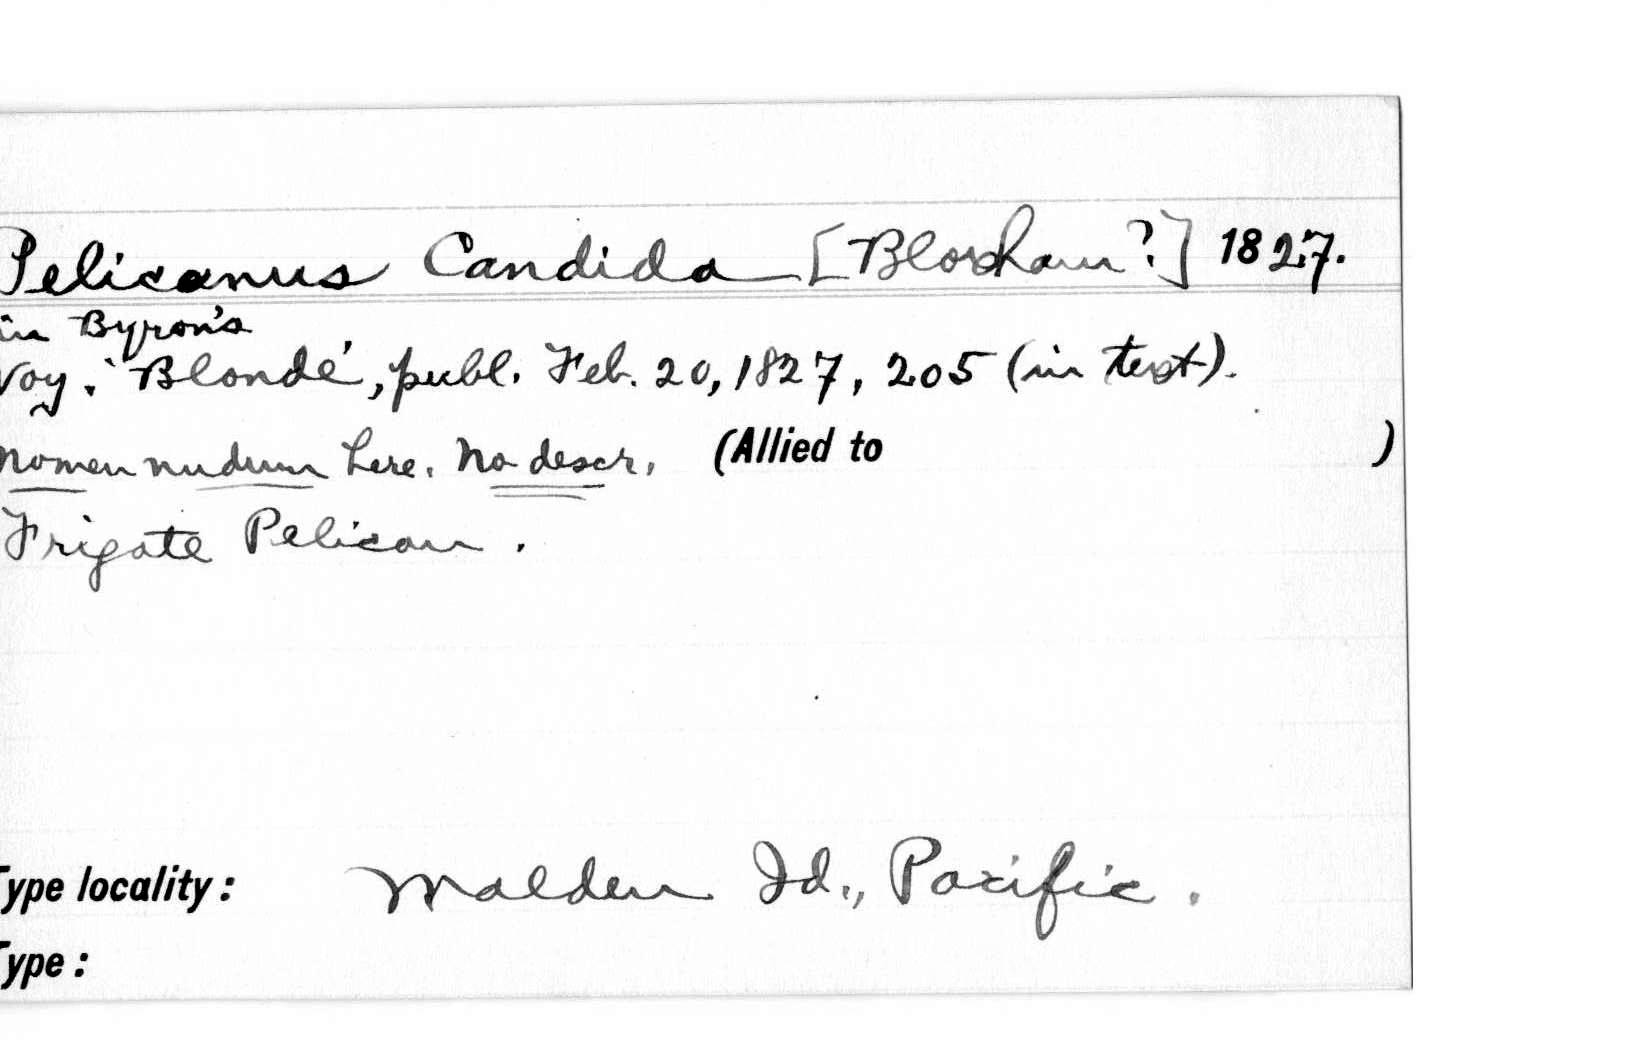 Pelicanus Candida [Bloxham?] 1827.
in Byron's
Voy. 'Blonde', publ. Feb. 20, 1827, 205 (in text).
Nomen nudum here. No descr. (Allied to )
Frigate Pelican.
Type locality: Malden Id., Pacific.
Type: